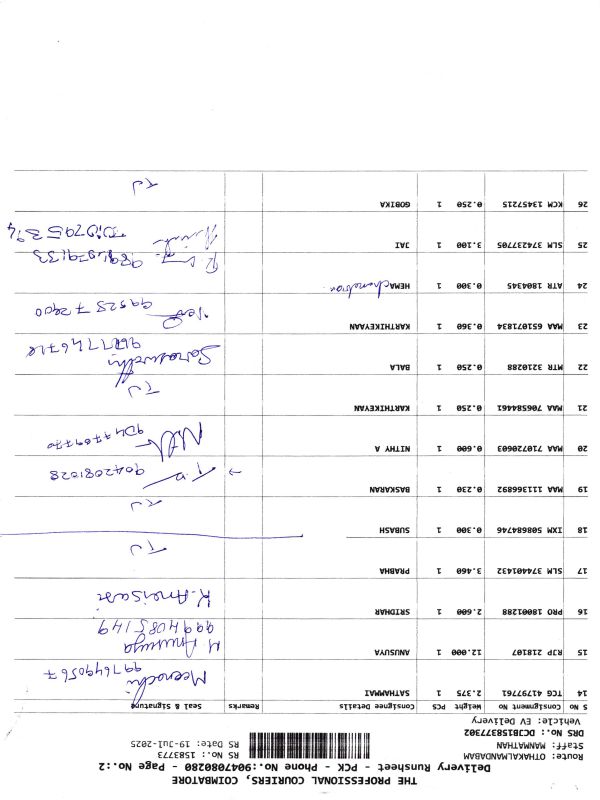 THE PROFESSIONAL COURIERS, COIMBATORE
Delivery Runsheet - PCK - Phone No.:9047080280 - Page No.:2
Route: OTHAKALMANDABAM
RS No.: 1583773
Staff: MANMATHAN
RS Date: 19-Jul-2025
DRS No.: DCJB1583773302
Vehicle: EV Delivery
S No Consignment No Weight PCS Consignee Details Remarks Seal & Signature
14 TCG 4179761 2.375 1 SATHAMMAI Meenachi 9976490567
15 RJP 218107 12.000 1 ANUSUYA Anusuya 9994085149
16 PRO 18001288 2.600 1 SRIDHAR
17 SLM 374401432 3.460 1 PRABHA TJ
18 IXM 508684746 0.300 1 SUBASH TJ
19 MAA 111366892 0.230 1 BASKARAN → 9042081028
20 MAA 710720603 0.600 1 NITHY A 9047709770
21 MAA 706584461 0.250 1 KARTHIKEYAN TJ
22 MTR 3210288 0.250 1 BALA
23 MAA 651071834 0.360 1 KARTHIKEYAAN 9952872900
24 ATR 1804345 0.300 1 HEMA
25 SLM 374237705 3.100 1 JAI
26 KCM 13457215 0.250 1 GOBIKA TJ